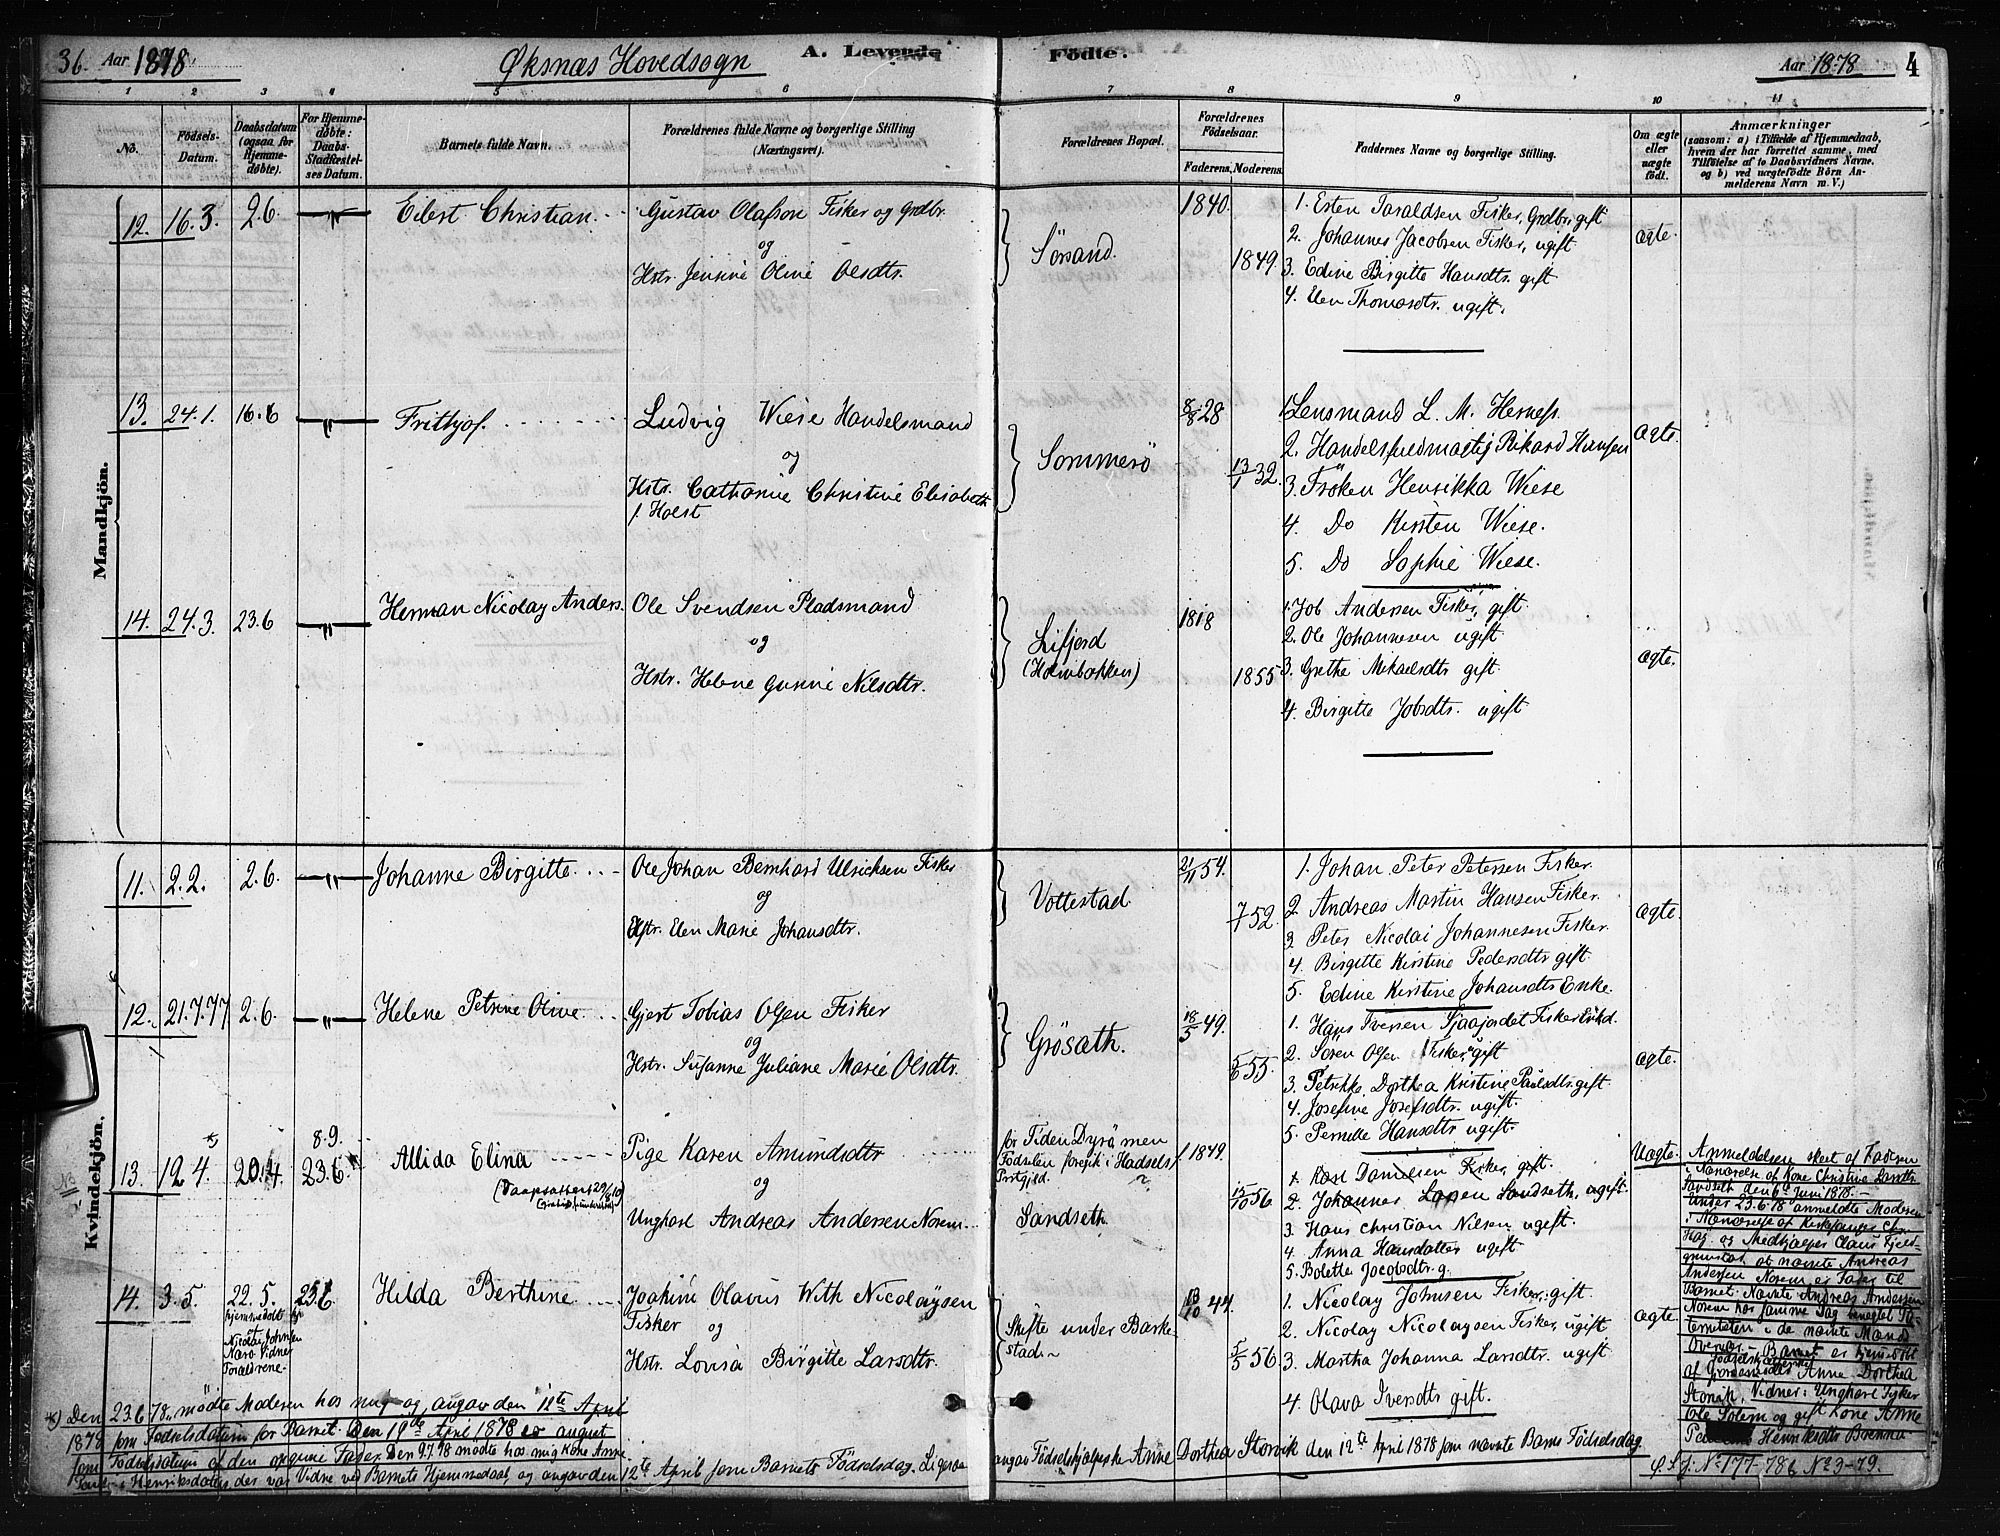 36. Aar 1878 Øksnæs Hovedsogn A. Levende Födte. Aar 1878 4
1 2 3 4 5 6 7 8 9 10 11
No. Födsels-Datum. Daabsdatum (ogsaa for Hjemmedøbte). For Hjemmedøbte: Daabs-Stadfæstelses Datum. Barnets fulde Navn. Forældrenes fulde Navne og borgerlige Stilling (Næringsvei). Forældrenes Bopæl. Forældrenes Födselsaar. Faderens. Moderens. Faddernes Navne og borgerlige Stilling. Om ægte eller uægte födt. Anmærkninger (saasom: a) i Tilfælde af Hjemmedaab, hvem der har forrettet samme, med Tilföielse af to Daabsvidners Navne. og b) ved uægtefödte Börn Anmelderens Navn m. V.)
Mandkjön.
12. 16.3. 2.6. —"— Eilert Christian Gustav Olafson Fisker og Grdbr.
og
Hstr. Jensine Oline Olsdtr.
Sörsand.
1840.
1849.
1. Esten Taraldsen Fisker, Grdbr, gift
2. Johannes Jacobsen Fisker, ugift
3. Edine Birgitte Hansdtr. gift
4. Elen Thomasdtr. ugift.
ægte.
13. 24.1. 16.6 —"— Frithjof. Ludvig Wiese Handelsmand
og
Hstr. Catharine Christine Elisabeth
f. Holst
Sommerö
8/8 28
13/1 32
1. Lensmand L. M. Herness.
2. Handelsfuldmægtig Rikard Hansen
3. Fröken Henrikka Wiese
4. Do Kirsten Wiese.
5. Do Sophie Wiese.
ægte.
14. 24.3. 23.6 —"— Herman Nicolay Anders. Ole Svendsen Pladsmand
og
Hstr. Helene Gurine Nilsdtr.
Lifjord
(Holmbakken)
1818
1855
1. Job Andersen Fisker, gift.
2. Ole Johannesen ugift
3. Grethe Mikaelsdtr gift.
4. Birgitte Jobsdtr. ugift
ægte.
Kvindekjön.
11. 2.2. 2.6. —"— Johanne Birgitte. Ole Johan Bernhard Ulricksen Fisker
og
Hstr. Elen Marie Johansdtr.
Vottestad
21/11 54.
7 52.
1. Johan Peter Petersen Fisker.
2. Andreas Martin Hansen Fisker.
3 Peter Nicolai Johannesen Fisker.
4. Birgitte Kirstine Pedersdtr gift.
5. Edine Kirstine Johansdtr Enke.
ægte.
12. 21.7.77 2.6. —"— Helene Petrine Oline Gjert Tobias Olsen Fisker
og
Hstr. Susanne Juliane Marie Olsdtr.
Grösath.
18/5 49.
5/6 55.
1. Hans Iversen Sjaajordet Fisker
2. Sören Olsen Fisker, gift
3. Petrikke Dorthea Kristine Paulsdtr. gift.
4. Josefine Josefsdtr. ugift.
5. Pernille Hansdtr. ugift.
ægte.
NB
13. 12 4 *) 20.4. 8.9. 23.6 Allida Elina Pige Karen Amundsdtr
og
Ungkarl Andreas Andersen Norem
for Tiden Dyrö men
Födselen foregik i Hadsels
Prstgjeld.
Sandseth.
1849.
15/10 56.
1. Karl Danielsen Fisker, gift.
2. Johannes Larsen Sandseth, ugift.
3. Hans Christian Nilsen ugift.
4. Anna Hansdatter ugift
5. Bolette Jacobsdtr. g.
Uægte. Anmeldelsen skeet af Faderen
i Nærværelse af Kone Christine Larsdtr
Sandseth den 6te Juni 1878.
Under 23.6.78 anmeldte Moderen
i Nærværelse af Kirkesanger Chr.
Hag og Medhjælper Claus Fjeld-
grunstad at nævnte Andreas
Andersen Norem er Fader til
Barnet. Nævnte Andreas Andersen
Norem har samme Dag benegtet Pa-
terniteten i de nævnte Mænds
Overvær. — Barnet er hjemmedöbt
af Födselshjælperske Anne Dorthea
Storvik. Vidner: Ungkarl Fisker
Ole Solem og gift Kone Anne
Henriksdtr Brenna
14. 3.5. 22.5. 23.6 Hilda Berthine Joakim Olavus With Nicolaysen
Fisker og
Hstr. Lovisa Birgitte Larsdtr.
hjemmedöbt
af
Nicolai Johnsen
Vidner
Forældrene.
Skifte under Barke-
stad.
13/10 44.
5/5 56
1. Nicolay Johnsen Fisker, gift.
2. Nicolay Nicolaysen Fisker, ugift
3. Martha Johanna Larsdtr. ugift
4. Olava Iversdtr gift.
ægte.
*) Den 23.6.78. mödte Moderen hos mig og angav den 11te April
1878 som Födselsdatum for Barnet. Den 19de April 1878 er angivet
som Födselsdatum af den opgivne Fader. Den 9.7.78 mödte hos mig Kone Anne
Henriksdatter, der var Vidne ved Barnets Hjemmedaab, og angav den 12te April som Barnets Födselsdag. Ligesaa
angav Födselshjælperske Anne Dorthea Storvik den 12te April 1878 som nævnte Barns Födselsdag.
No 177-78 & No 3-79.